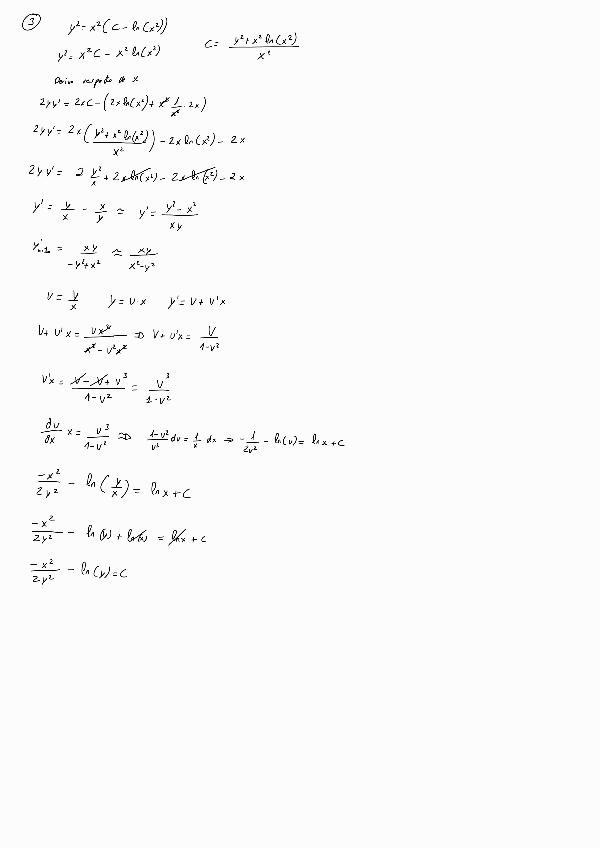 ③ y² = x²(C - ln(x²))
y² = x²C - x² ln(x²)    C = (y² + x² ln(x²))/x²
respecto de x
2yy' = 2xC - (2x ln(x²) + x² 1/x² · 2x)
2yy' = 2x((y² + x² ln(x²))/x²) - 2x ln(x²) - 2x
2yy' = 2 y²/x + 2x ln(x²) - 2x ln(x²) - 2x
y' = y/x - x/y ≈ y' = (y² - x²)/xy
= xy/(-y² + x²) ≈ xy/(x² - y²)
v = y/x    y = v·x    y' = v + v'x
v + v'x = vx²/(x² - v²x²) ⇒ v + v'x = v/(1 - v²)
v'x = (v - v + v³)/(1 - v²) = v³/(1 - v²)
dv/dx x = v³/(1 - v²) ⇒ (1 - v²)/v³ dv = 1/x dx ⇒ -1/2v² - ln(v) = ln x + C
-x²/2y² - ln(y/x) = ln x + C
-x²/2y² - ln(y) + ln(x) = ln x + C
-x²/2y² - ln(y) = C